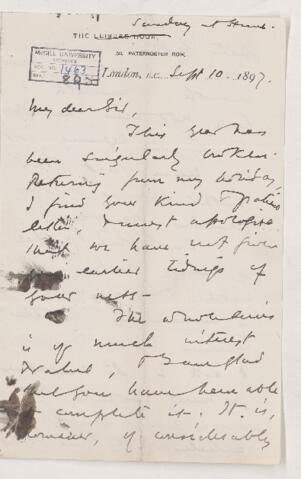 Sunday at Home.
THE LEISURE HOUR,
56, PATERNOSTER ROW,
McGILL UNIVERSITY
ARCHIVES
ACC. NO. 1463
REF. 89
London, E.C. Sept 10. 1897.
My dear Sir,
This year has
been singularly broken.
Returning from my holiday,
I find your kind &
letter, I must apologise
that we have not given
earlier tidings of
your
The whole
is of much interest
& value, & I am glad
that you have been able
to complete it. It is,
however, of considerably